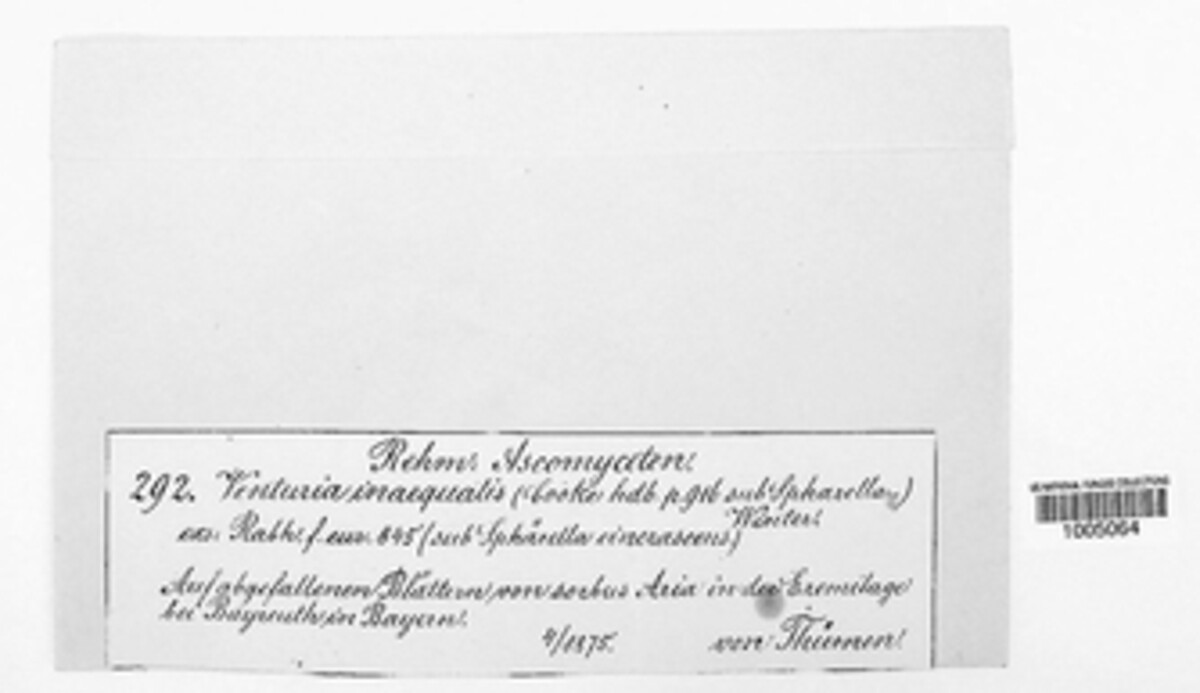 Rehm: Ascomyceten.
292. Venturia inaequalis (Cooke hdb. p. 918 sub Sphaerella)
Winter.
exs. Rabh. f. eur. 845 (sub Sphärella cinerascens)
Auf abgefallenen Blättern von sorbus Aria in der Eremitage
bei Bayreuth in Bayern.
4/1875. von Thümen.
US NATIONAL FUNGUS COLLECTIONS
1005064